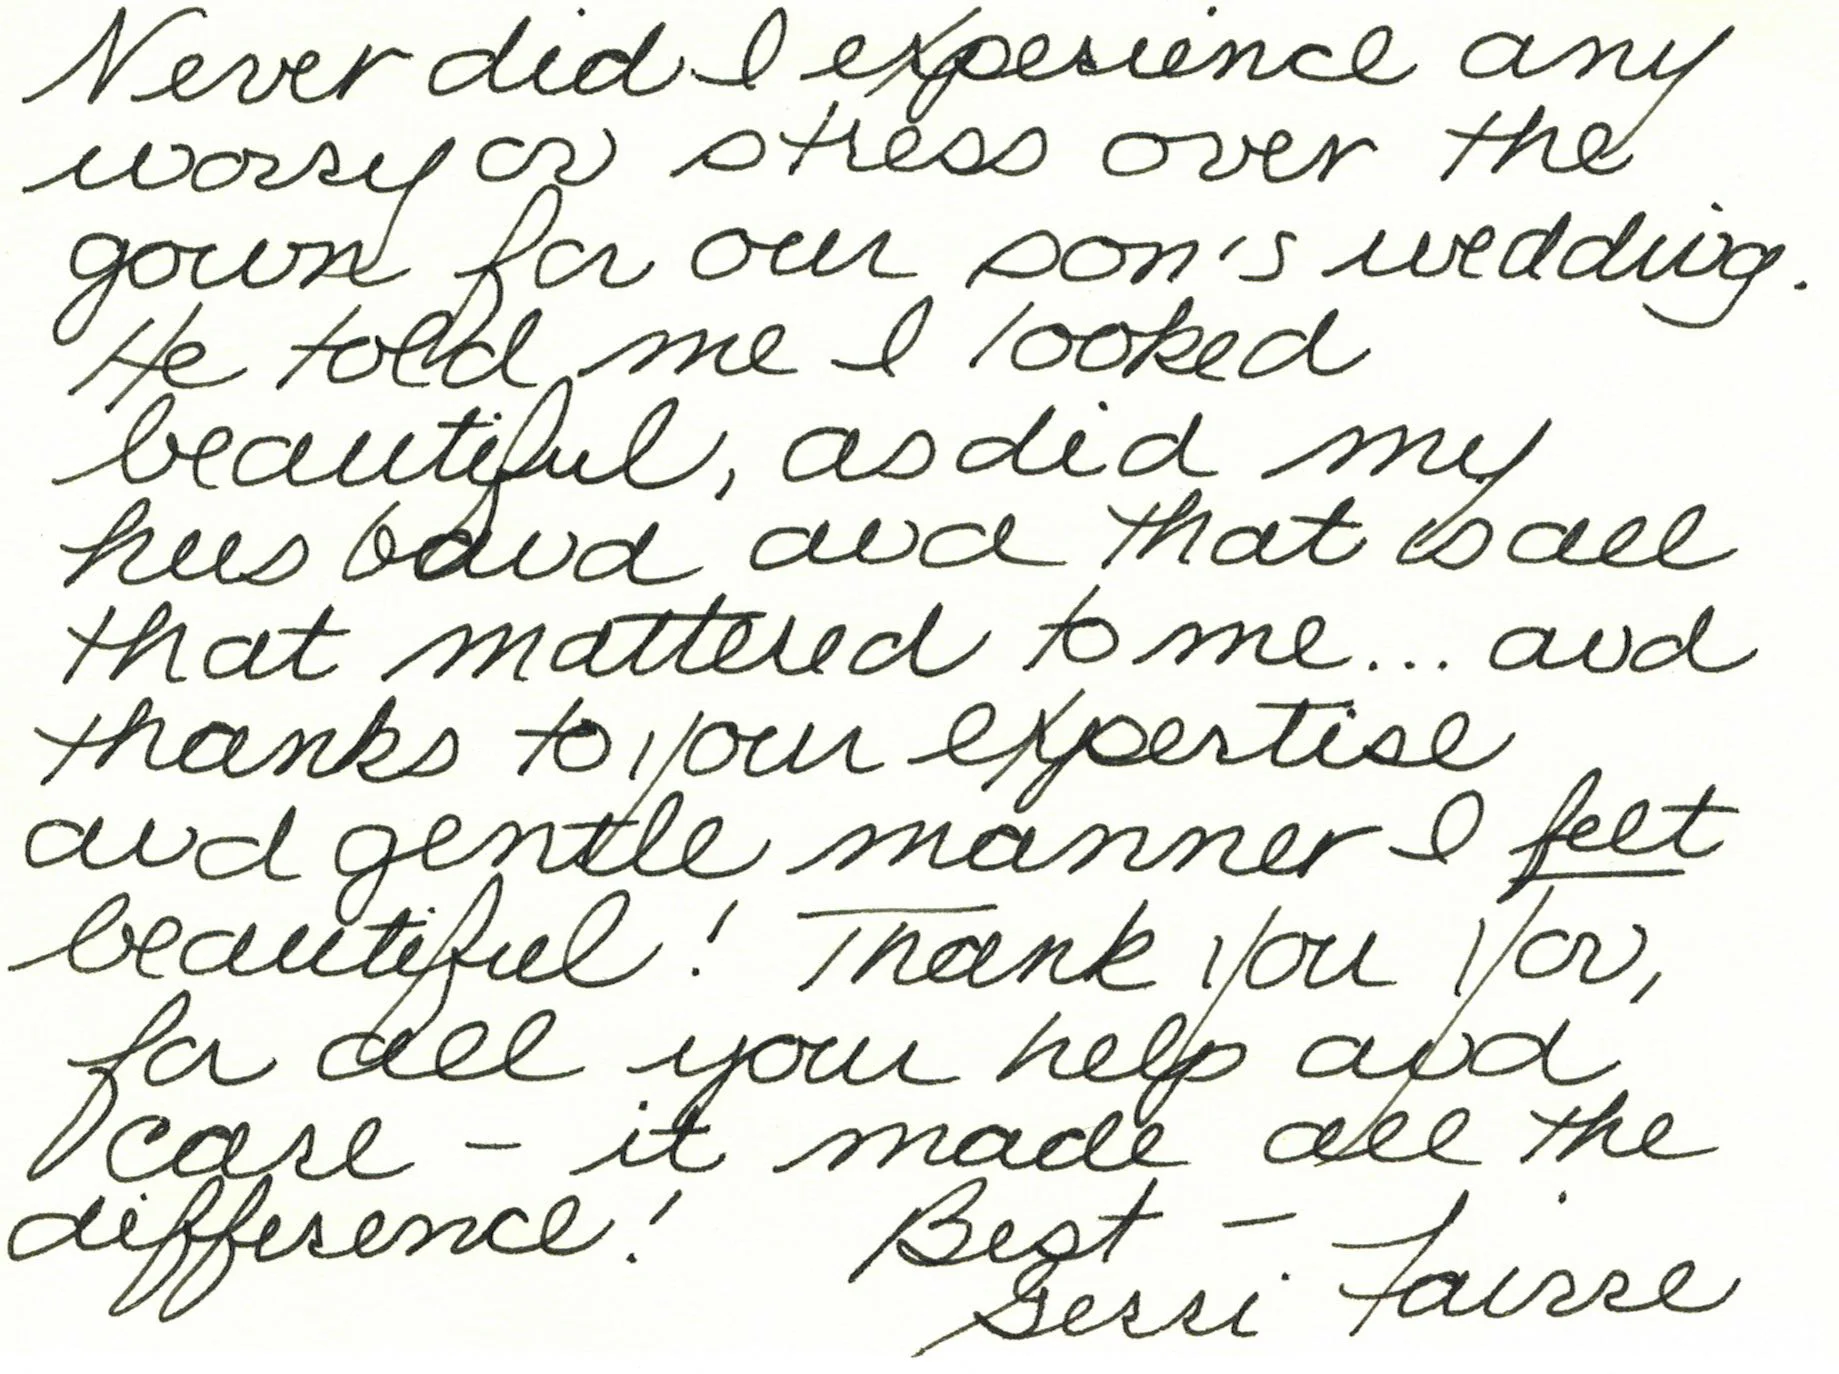 Never did I experience any
worry or stress over the
gown for our son's wedding.
He told me I looked
beautiful, as did my
husband and that is all
that mattered to me... and
thanks to your expertise
and gentle manner I felt
beautiful! Thank you Yov,
for all your help and
care - it made all the
difference! Best -
Gerri Fairre